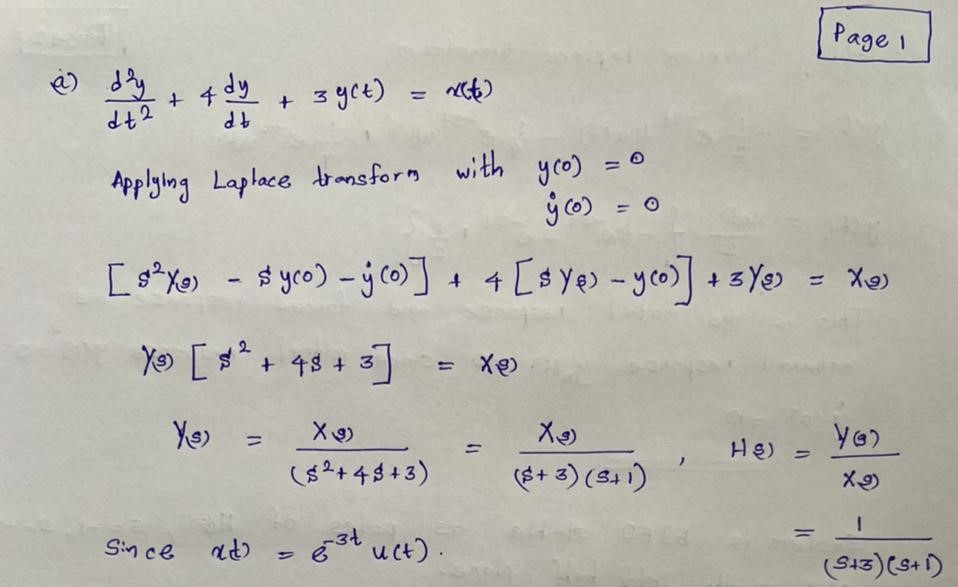 Page 1
a) d²y/dt² + 4 dy/dt + 3 y(t) = x(t)
Applying Laplace transform with y(0) = 0
ẏ(0) = 0
[ s²Y(s) - s y(0) - ẏ(0) ] + 4 [ s Y(s) - y(0) ] + 3 Y(s) = X(s)
Y(s) [ s² + 4s + 3 ] = X(s)
Y(s) = X(s)/(s² + 4s + 3) = X(s)/((s + 3)(s + 1)) , H(s) = Y(s)/X(s)
= 1/((s+3)(s+1))
Since x(t) = e^-3t u(t).